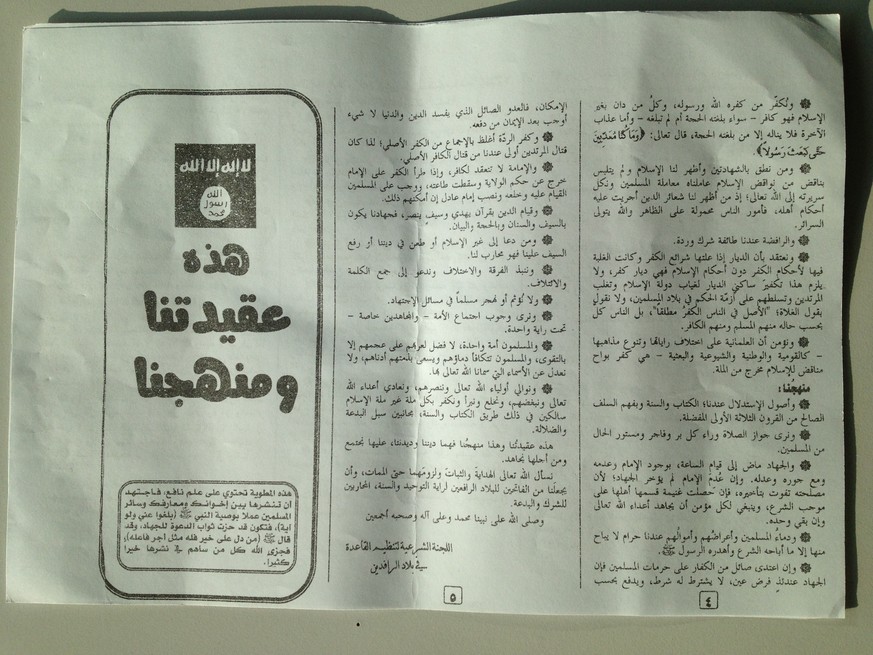 ۞ ونُكفّر من كفره الله ورسوله، وكلُ من دان بغير
الإسلام فهو كافر - سواء بلغته الحجة أم لم تبلغه - وأما عذاب
الآخرة فلا يناله إلا من بلغته الحجة، قال تعالى: ﴿وَمَا كُنَّا مُعَذِّبِينَ
حَتَّى نَبْعَثَ رَسُولاً﴾.
۞ ومن نطق بالشهادتين وأظهر لنا الإسلام ولم يتلبس
بناقض من نواقض الإسلام عاملناه معاملة المسلمين ونكل
سريرته إلى الله تعالى؛ إذ من أظهر لنا شعائر الدين أجريت عليه
أحكام أهله، فأمور الناس محمولة على الظاهر والله يتولى
السرائر.
۞ والرافضة عندنا طائفة شرك وردة.
۞ ونعتقد بأن الديار إذا علتها شرائع الكفر وكانت الغلبة
فيها لأحكام الكفر دون أحكام الإسلام فهي ديار كفر، ولا
يلزم هذا تكفير ساكني الديار لغياب دولة الإسلام وتغلب
المرتدين وتسلطهم على أزمّة الحكم في بلاد المسلمين، ولا نقول
بقول الغلاة؛ "الأصل في الناس الكفرُ مطلقاً"، بل الناس كلٌ
بحسب حاله منهم المسلم ومنهم الكافر.
۞ ونؤمن أن العلمانية على اختلاف راياتها وتنوع مذاهبها
- كالقومية والوطنية والشيوعية والبعثية - هي كفر بواح
مناقض للإسلام مخرج من الملة.
منهجنا:
۞ وأصول الإستدلال عندنا؛ الكتاب والسنة وبفهم السلف
الصالح من القرون الثلاثة الأولى المفضلة.
۞ ونرى جواز الصلاة وراء كل بر وفاجر ومستور الحال
من المسلمين.
۞ والجهاد ماض إلى قيام الساعة، بوجود الإمام وعدمه
ومع جوره وعدله. وإن عُدمَ الإمام لم يؤخر الجهاد؛ لأن
مصلحته تفوت بتأخيره، فإن حصلت غنيمة قسمها أهلها على
موجب الشرع، وينبغي لكل مؤمن أن يجاهد أعداء الله تعالى
وإن بقي وحده.
۞ ودماءُ المسلمين وأعراضُهم وأموالُهم عندنا حرام لا يباح
منها إلا ما أباحه الشرع وأهدره الرسول ﷺ.
۞ وإن اعتدى صائل من الكفار على حرمات المسلمين فإن
الجهاد عندئذٍ فرض عين، لا يشترط له شرط، ويدفع بحسب
٤
الإمكان، فالعدو الصائل الذي يفسد الدين والدنيا لا شيء
أوجب بعد الإيمان من دفعه.
۞ وكفر الردّة أغلظ بالإجماع من الكفر الأصلي؛ لذا كان
قتال المرتدين أولى عندنا من قتال الكافر الأصلي.
۞ والإمامة لا تنعقد لكافر، وإذا طرأ الكفر على الإمام
خرج عن حكم الولاية وسقطت طاعته، ووجب على المسلمين
القيام عليه وخلعه ونصب إمام عادل إن أمكنهم ذلك.
۞ وقيام الدين بقرآن يهدي وسيف ينصر، فجهادنا يكون
بالسيف والسنان وبالحجة والبيان.
۞ ومن دعا إلى غير الإسلام أو طعن في ديننا أو رفع
السيف علينا فهو محارب لنا.
۞ وننبذ الفرقة والاختلاف وندعو إلى جمع الكلمة
والائتلاف.
۞ ولا نُؤثم أو نهجر مسلماً في مسائل الإجتهاد.
۞ ونرى وجوب اجتماع الأمة - والمجاهدين خاصة -
تحت راية واحدة.
۞ والمسلمون أمة واحدة، لا فضل لعربهم على عجمهم إلا
بالتقوى، والمسلمون تتكافأ دماؤهم ويسعى بذمتهم أدناهم، ولا
نعدل عن الأسماء التي سمانا الله تعالى بها.
۞ ونوالي أولياء الله تعالى وننصرهم، ونعادي أعداء الله
تعالى ونبغضهم، ونخلع ونبرأ ونكفر بكل ملة غير ملة الإسلام
سالكين في ذلك طريق الكتاب والسنة، مجانبين سبل البدعة
والضلالة.
هذه عقيدتُنا وهذا منهجُنا فهما ديننا وديدننا، عليها نجتمع
ومن أجلها نجاهد.
نسأل الله تعالى الهداية والثبات ولزومَهما حتى الممات، وأن
يجعلنا من الفاتحين للبلاد الرافعين لراية التوحيد والسنة، المحاربين
للشرك والبدعة.
وصلى الله على نبينا محمد وعلى آله وصحبه أجمعين
اللجنة الشرعية لتنظيم القاعدة
في بلاد الرافدين
٥
لا إله إلا الله
الله
رسول
محمد
هذه
عقيدتنا
ومنهجنا
هذه المطوية تحتوي على علم نافع، فاجتهد
أن تنشرها بين إخوانك ومعارفك وسائر
المسلمين عملا بوصية النبي ﷺ (بلغوا عني ولو
آية)، فتكون قد حزت ثواب الدعوة للجهاد، وقد
قال ﷺ (من دل على خير فله مثل أجر فاعله)،
فجزى الله كل من ساهم في نشرها خيرا
كثيرا.